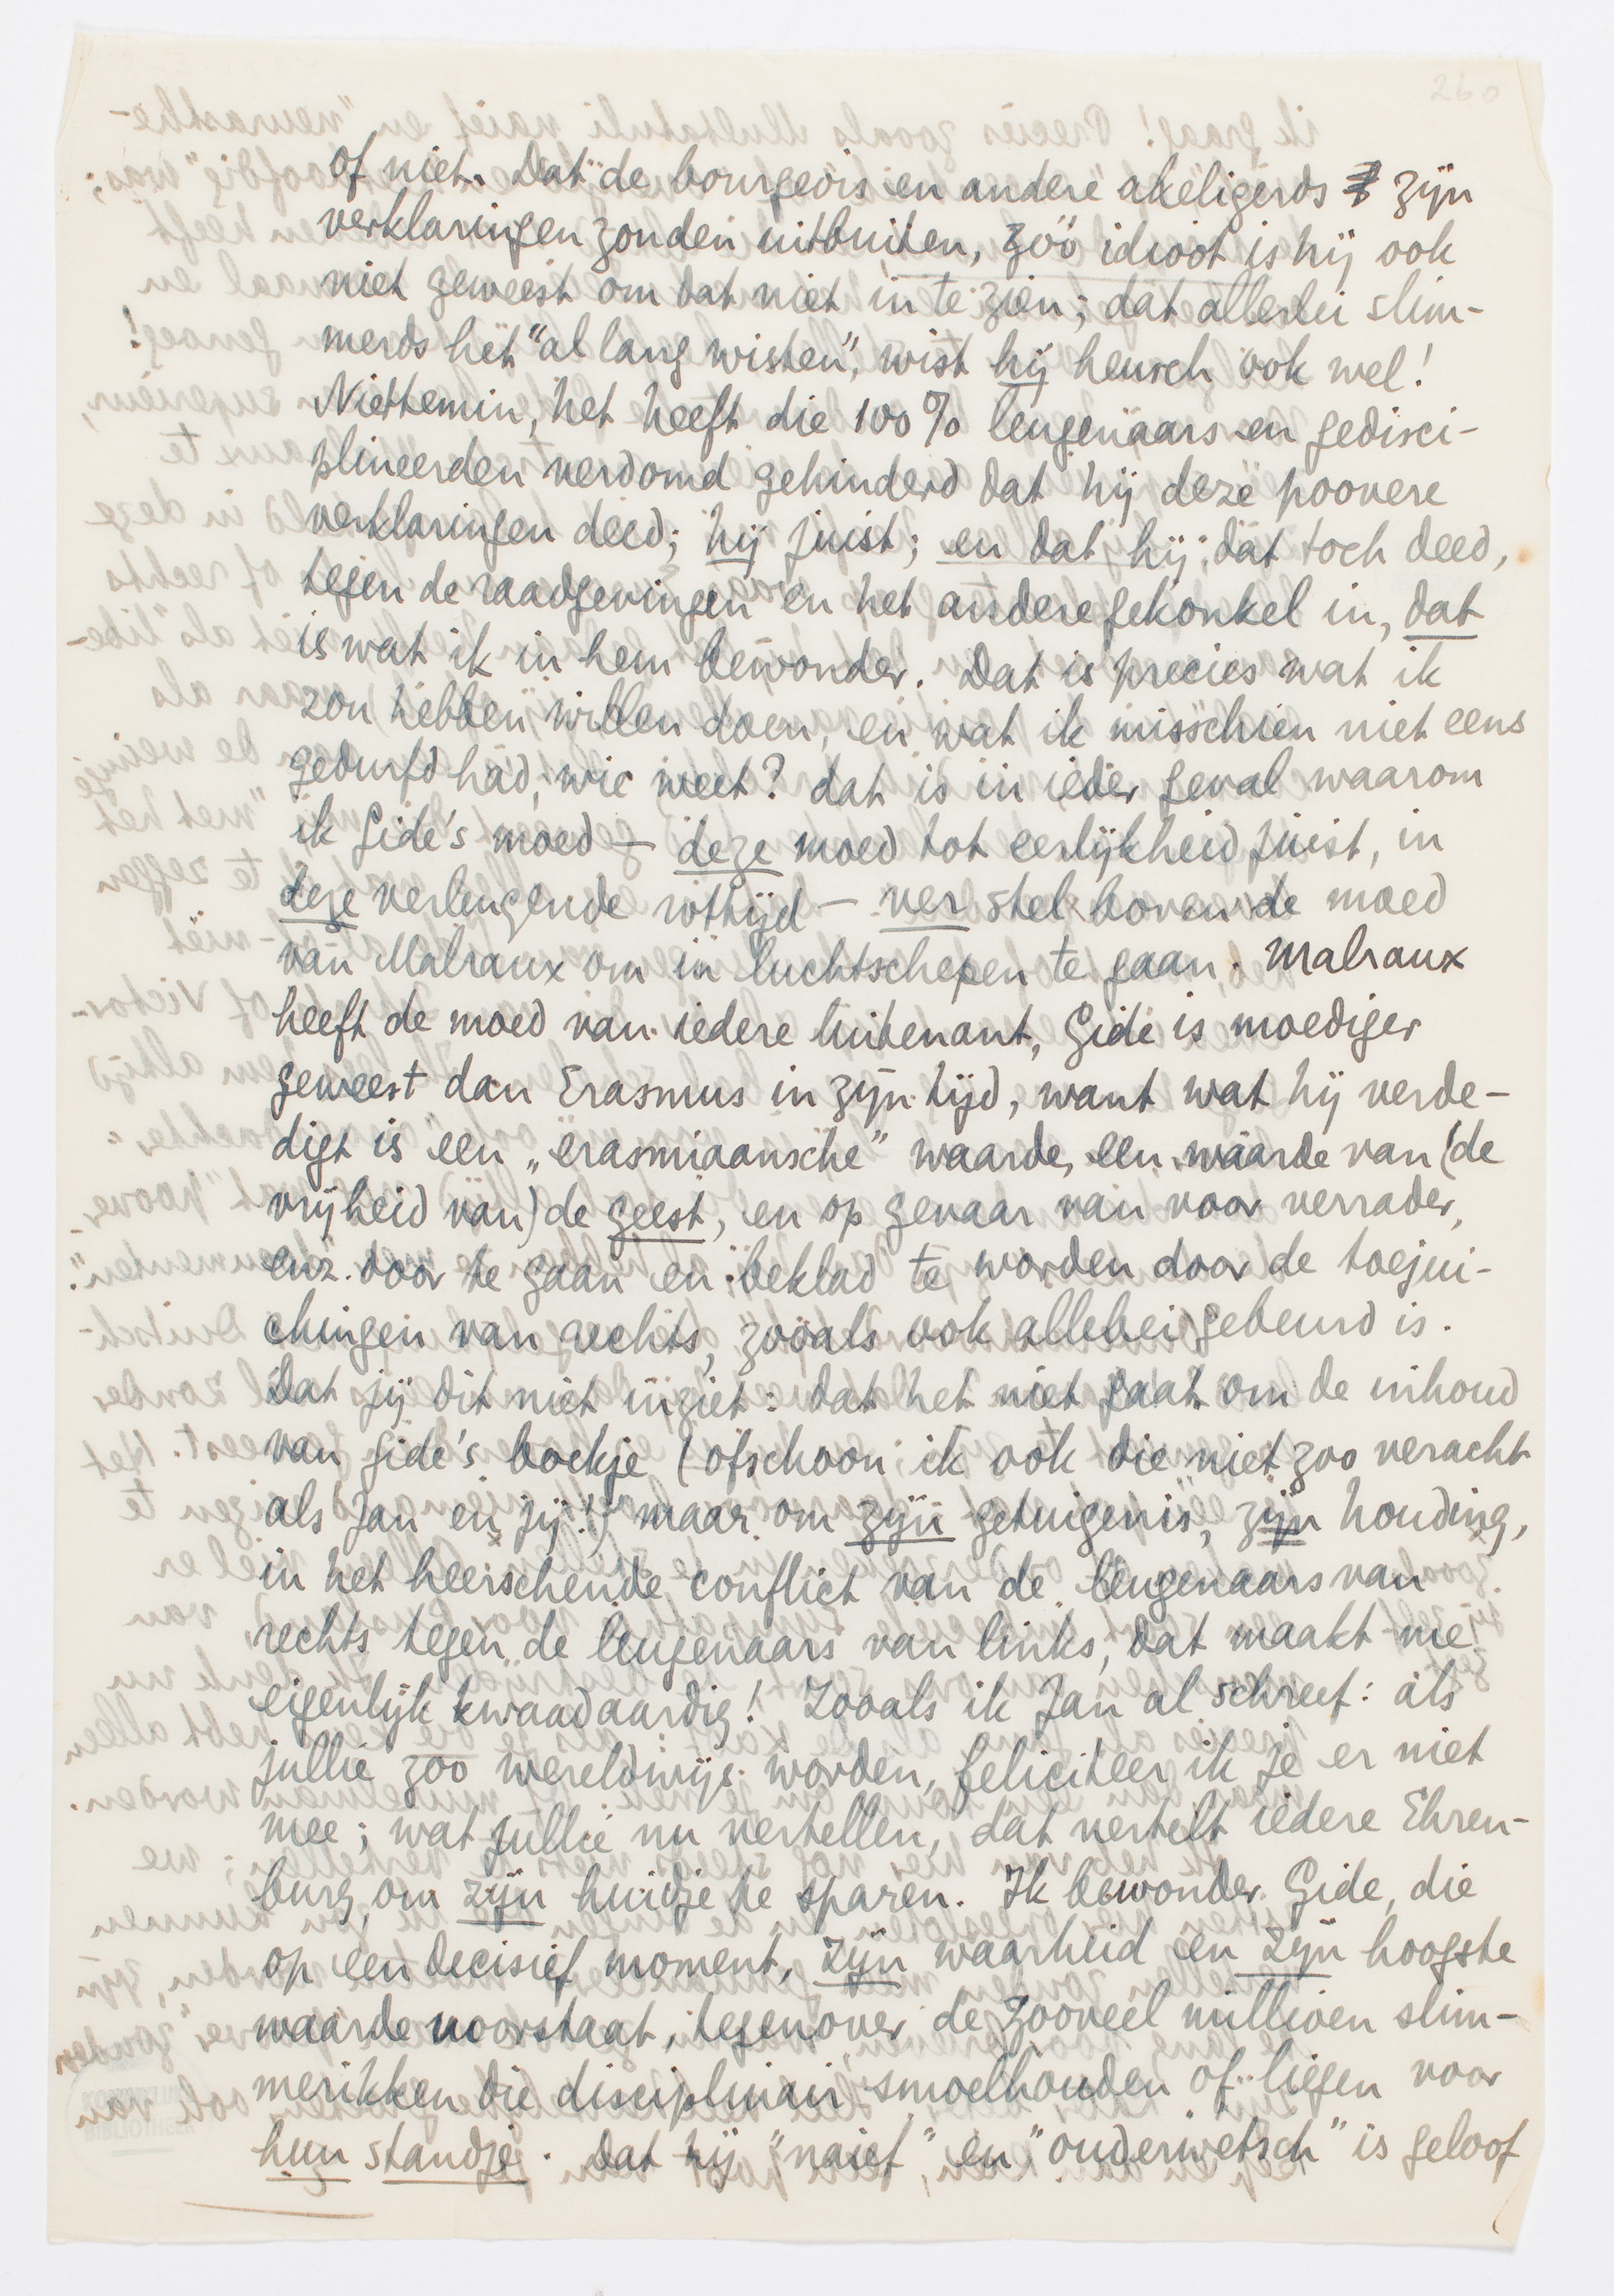 260
of niet. Dat de bourgeois en andere akeligerds zijn
verklaringen zouden uitbuiten, zóó idioot is hij ook
niet geweest om dat niet in te zien; dat allerlei slim-
merds het "al lang wisten", wist hij heusch ook wel!
Niettemin, het heeft die 100% leugenaars en gedisci-
plineerden verdomd gehinderd dat hij deze poovere
verklaringen deed; hij juist; en dat hij dàt toch deed,
tegen de raadgevingen en het andere gekonkel in, dat
is wat ik in hem bewonder. Dat is precies wat ik
zou hebben willen doen, en wat ik misschien niet eens
gedurfd had, wie weet? dat is in ieder geval waarom
ik Gide's moed – deze moed tot eerlijkheid juist, in
deze verleugende rottijd – ver stel boven de moed
van Malraux om in luchtschepen te gaan. Malraux
heeft de moed van iedere luitenant, Gide is moediger
geweest dan Erasmus in zijn tijd, want wat hij verde-
digt is een „erasmiaansche" waarde, een waarde van (de
vrijheid van) de geest, en op gevaar van voor verrader,
enz. door te gaan en beklad te worden door de toejui-
chingen van rechts, zooals ook allebei gebeurd is.
Dat jij dit niet inziet: dat het niet gaat om de inhoud
van Gide's boekje (ofschoon ik ook die niet zoo veracht
als Jan en jij!) maar om zijn getuigenis, zijn houding,
in het heerschende conflict van de leugenaars van
rechts tegen de leugenaars van links, dat maakt me
eigenlijk kwaadaardig! Zooals ik Jan al schreef: als
jullie zoo wereldwijs worden, feliciteer ik je er niet
mee; wat jullie nu vertellen, dat vertelt iedere Ehren-
burg, om zijn huidje te sparen. Ik bewonder Gide, die
op een decisief moment, zijn waarheid en zijn hoogste
waarde voorstaat, tegenover de zooveel millioen slim-
merikken die disciplinair smoelhouden of liegen voor
hun standje. Dat hij "naïef" en "ouderwetsch" is geloof